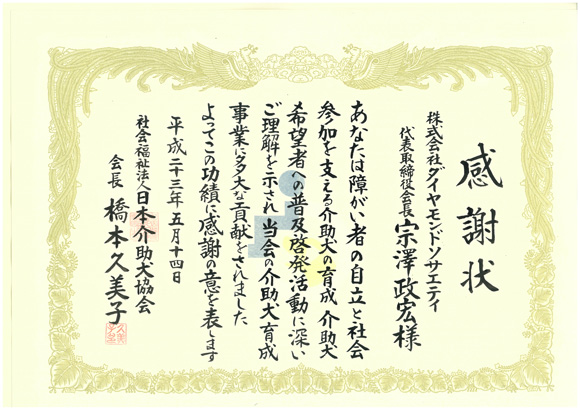 感謝状
株式会社ダイヤモンドソサエティ
代表取締役会長 宗澤政宏様
あなたは障がい者の自立と社会
参加を支える介助犬の育成 介助犬
希望者への普及啓発活動に深い
ご理解を示され 当会の介助犬育成
事業に多大な貢献をされました
よってこの功績に感謝の意を表します
平成二十三年五月十四日
社会福祉法人日本介助犬協会
会長 橋本久美子